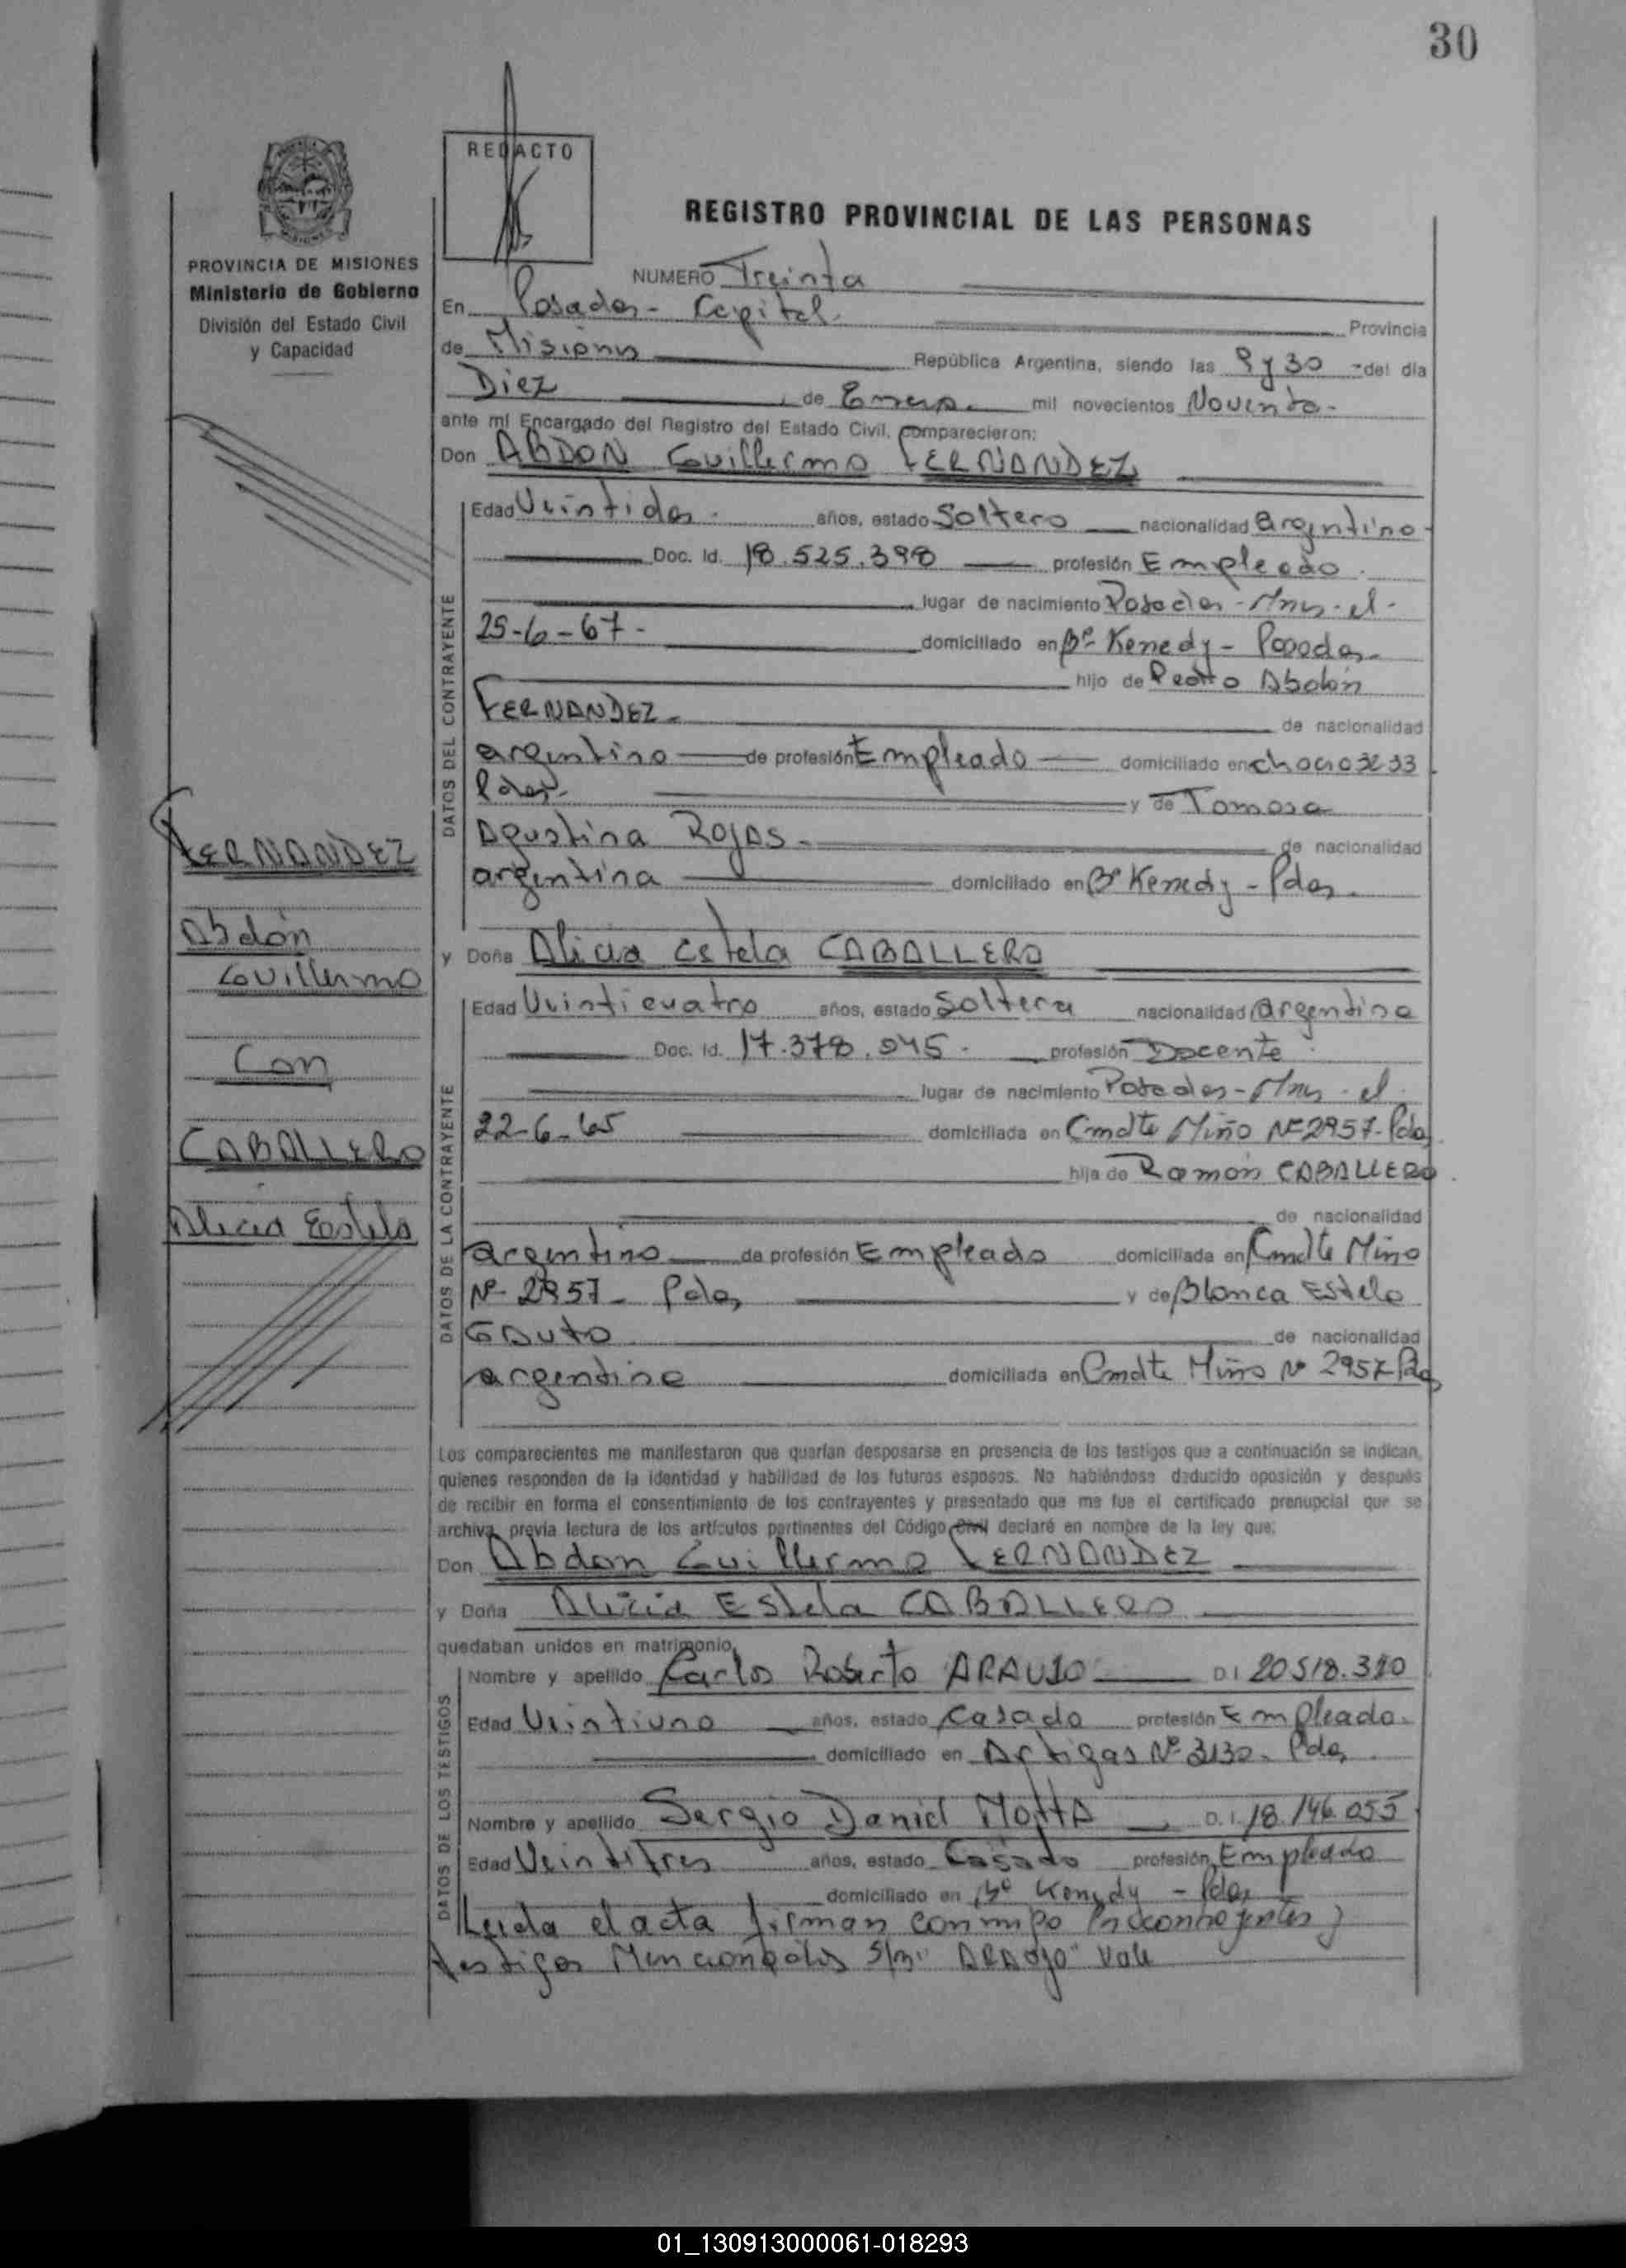 30
REDACTO
REGISTRO PROVINCIAL DE LAS PERSONAS
PROVINCIA DE MISIONES
Ministerio de Gobierno
División del Estado Civil
y Capacidad
NUMERO Treinta
En Posadas - Capital. Provincia
de Misiones República Argentina, siendo las 9 y 30 - del día
Diez de Enero. mil novecientos Noventa -
ante mí Encargado del Registro del Estado Civil, comparecieron:
Don ABDON Guillermo FERNANDEZ
DATOS DEL CONTRAYENTE
Edad Veintidos. años, estado Soltero nacionalidad argentino -
Doc. Id. 18.525.398 profesión Empleado.
lugar de nacimiento Posadas - Mnes - el -
25-6-67 - domiciliado en Bº Kenedy - Posadas
hijo de Pedro Abdón
FERNANDEZ - de nacionalidad
argentino de profesión Empleado domiciliado en
Pdas. y de Tomasa
Agustina ROJAS - de nacionalidad
argentina domiciliado en Bº Kenedy - Pdas.
y Doña Alicia Estela CABALLERO
FERNANDEZ
Abdón
Guillermo
Con
CABALLERO
Alicia Estela
DATOS DE LA CONTRAYENTE
Edad Veinticuatro años, estado Soltera nacionalidad argentina
Doc. Id. 17.378.045 - profesión Docente.
lugar de nacimiento Posadas - Mnes - el
22-6-65 domiciliada en Cmdte Miño Nº 2957 - Pdas
hija de Ramón CABALLERO
de nacionalidad
argentino de profesión Empleado domiciliada en Cmdte Miño
Nº 2957 - Pdas y de Blanca Estela
GAUTO de nacionalidad
argentina domiciliada en Cmdte Miño Nº 2957 Pdas
Los comparecientes me manifestaron que querían desposarse en presencia de los testigos que a continuación se indican,
quienes responden de la identidad y habilidad de los futuros esposos. No habiéndose deducido oposición y después
de recibir en forma el consentimiento de los contrayentes y presentado que me fue el certificado prenupcial que se
archiva, previa lectura de los artículos pertinentes del Código Civil declaré en nombre de la ley que:
Don Abdon Guillermo FERNANDEZ
y Doña Alicia Estela CABALLERO
quedaban unidos en matrimonio.
DATOS DE LOS TESTIGOS
Nombre y apellido Carlos Roberto ARAUJO D.I. 20518.320
Edad Veintiuno años, estado Casado profesión Empleado.
domiciliado en Artigas Nº 3130 - Pdas
Nombre y apellido Sergio Daniel MOTTA D.I. 18.146.055
Edad Veintitres años, estado Casado profesión Empleado
domiciliado en Bº Kenedy - Pdas
Leida el acta firman conmigo los contrayentes y
testigos Mencionados S/r: "ARAUJO" Vale
01_130913000061-018293